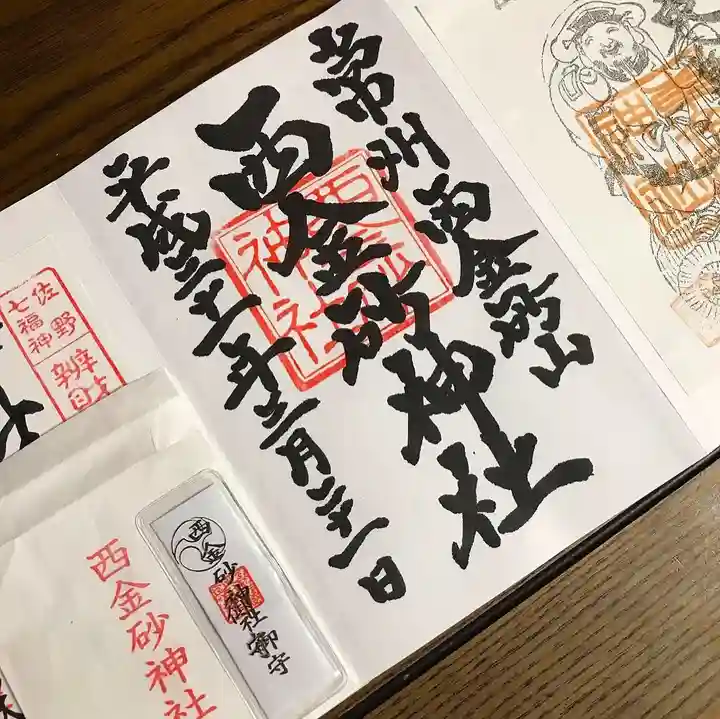 常州西金砂山
西金砂神社
平成三十一年三月二十一日
西金
砂神社
佐野
七福神
西金砂神社
西金砂神社御守